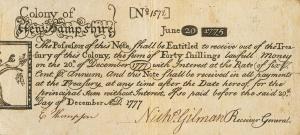 Colony of [No 1572]
New Hampshire June 20 1775
The Possessor of this Note shall be Entitled to receive out of the Treasury
of this Colony, the sum of Forty shillings lawfull Money
on the 20th of December 1777 with Interest at the Rate of six P
Cent P Annum, And this Note shall be received in all payments
at the Treasury, at any time after the Date hereof, for the
principal Sum without Interest, if so paid before the said 20th
Day of December AD. 1777
Nich Gilman Receiver General